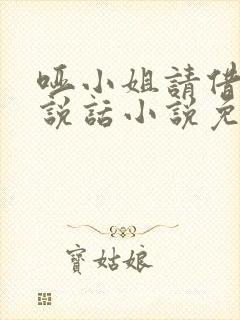 哑小姐請借
說話小說免
寳姑娘